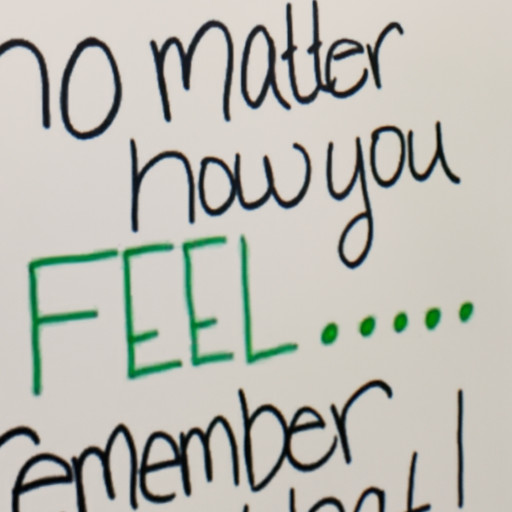 no matter
how you
FEEL.....
remember
that I